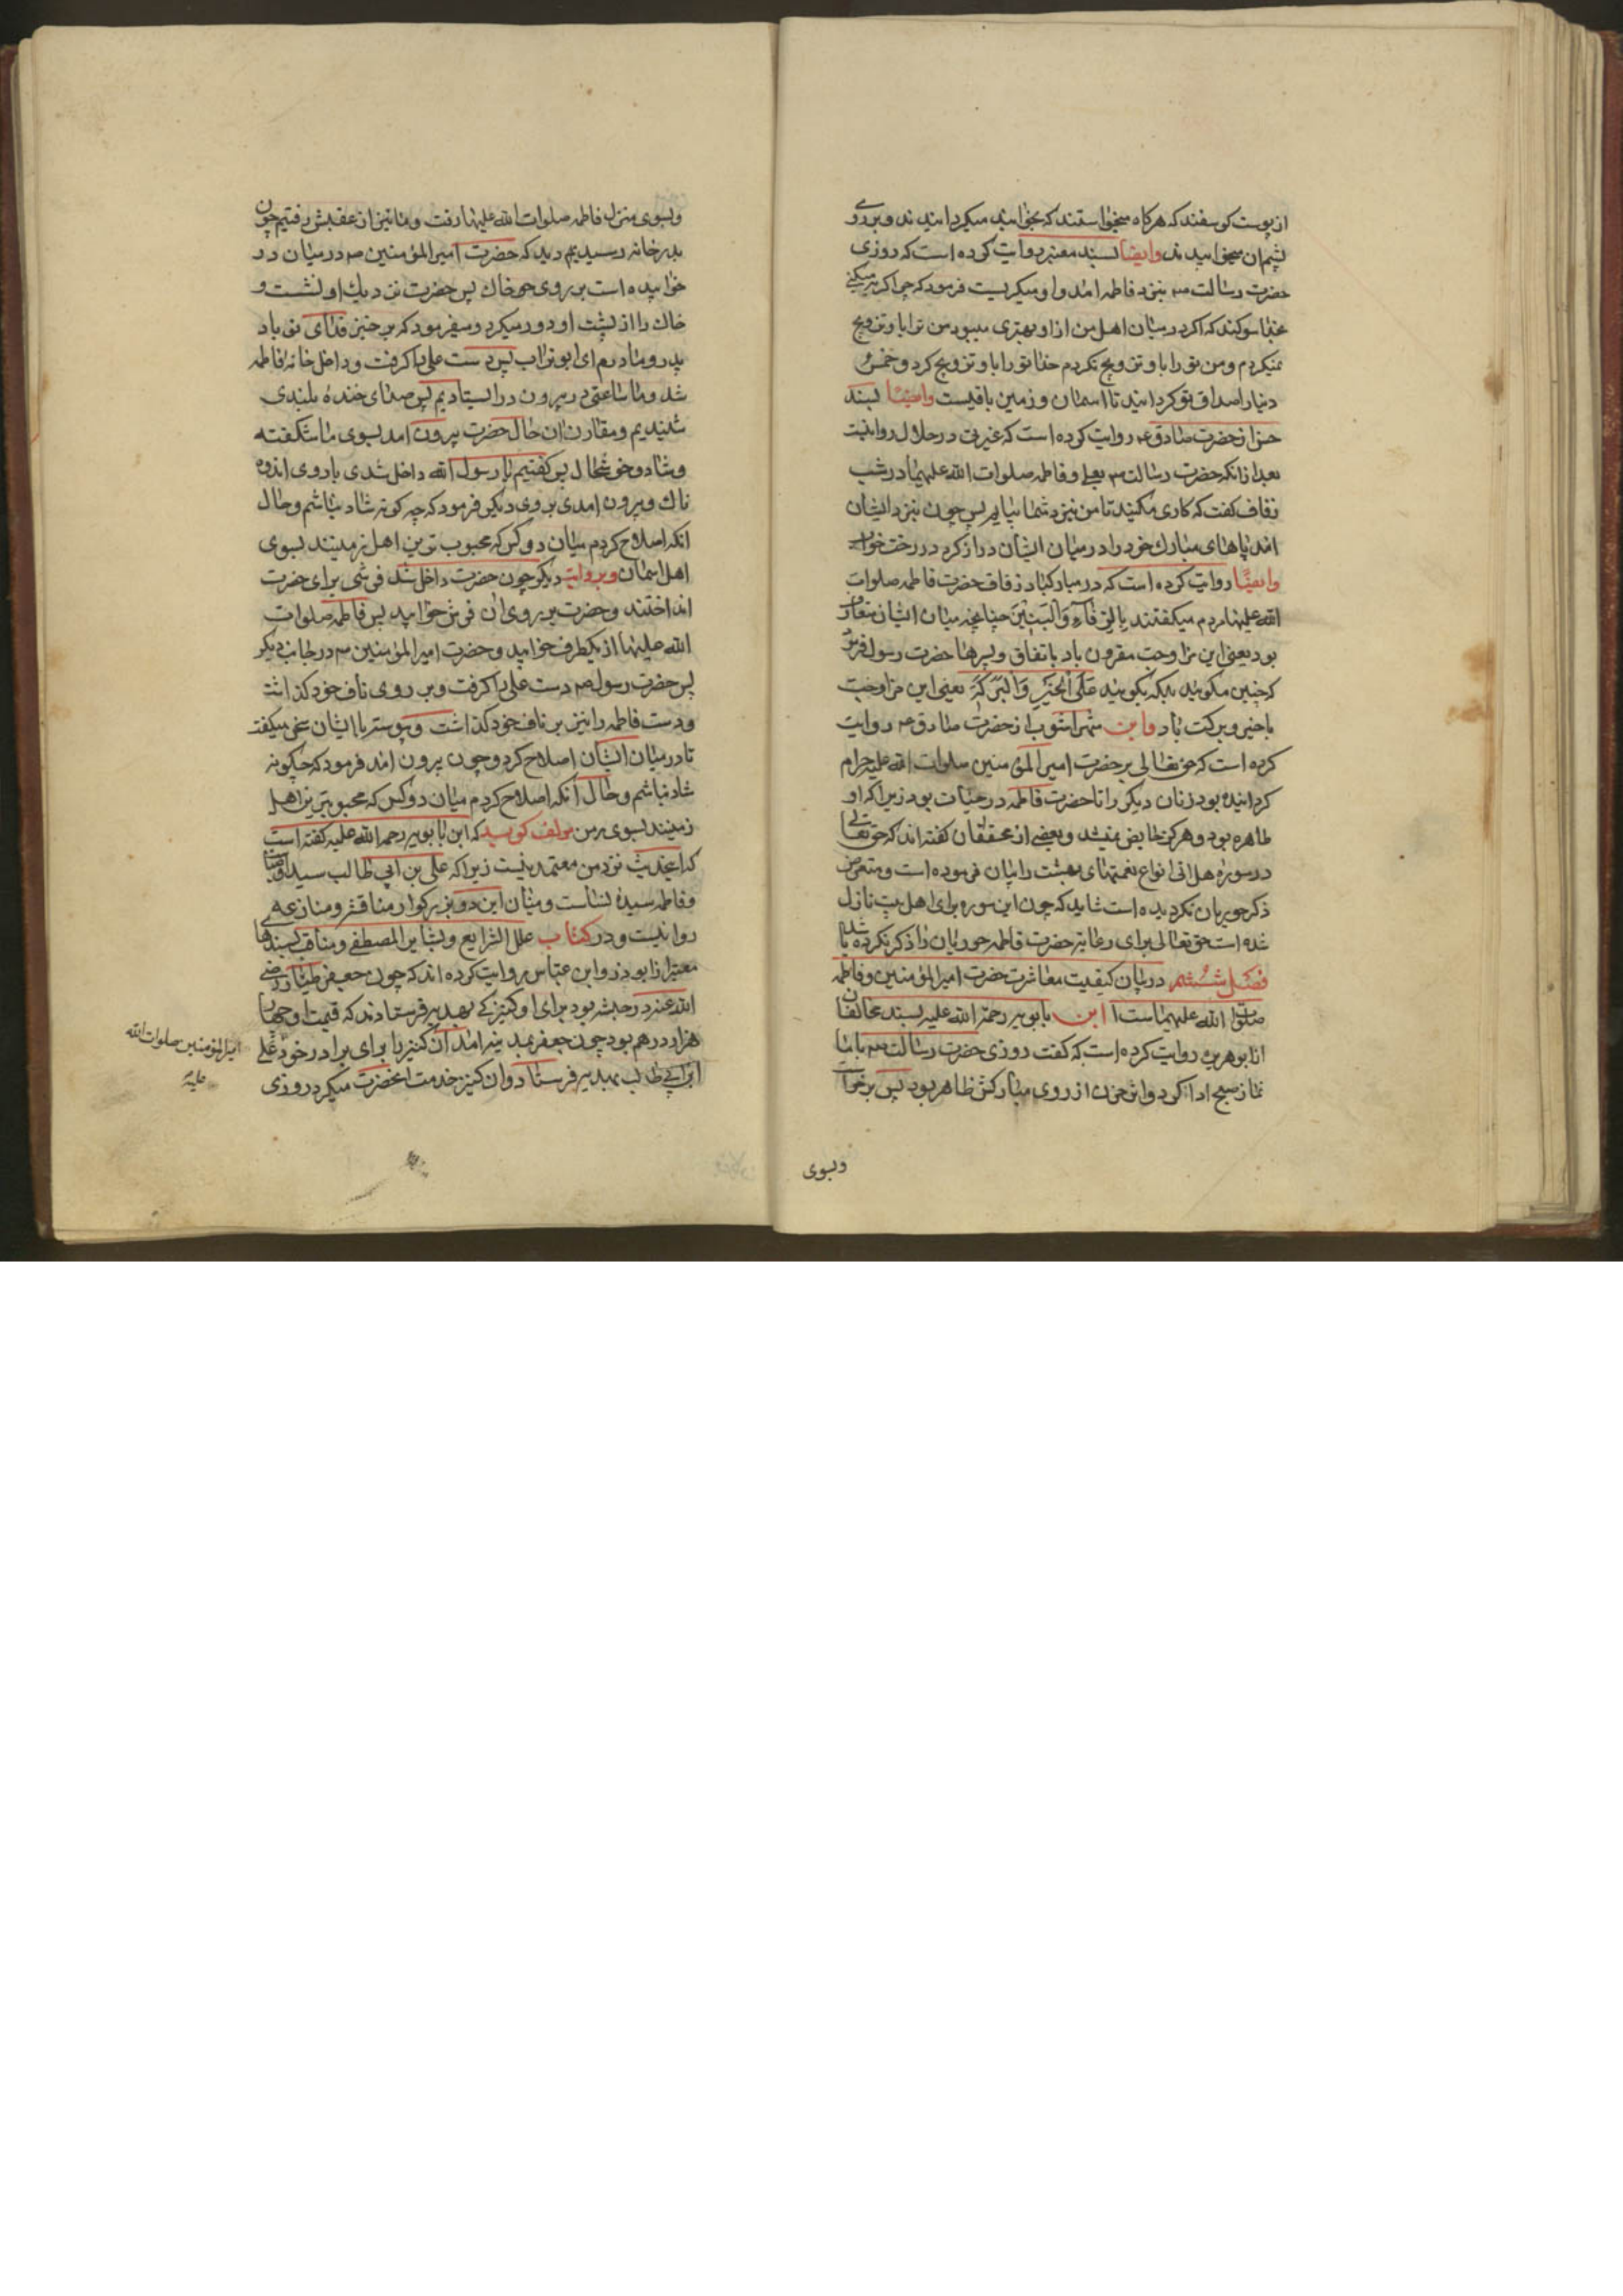 از پوست کوسفند که هرکاه میخواستند که بخوابند میکردانیدند و بر روی
پشم ان میخوابیدند وایضا بسند معتبر روایت کرده است که روزی
حضرت رسالت ص بنزد فاطمه امد و او میکریست فرمود که چرا کریه میکنی
بخدا سوکند که اکر در میان اهل من از او بهتری میبود من ترا باو تزویج
نمیکردم و من تورا باو تزویج نکردم خدا تورا باو تزویج کرد و خمس
دنیا را صداق تو کردانید تا اسمان و زمین باقیست وایضا بسند
حسن از حضرت صادق ع روایت کرده است که غیرتی در حلال روا نیست
بعد از انکه حضرت رسالت ص بعلی و فاطمه صلوات الله علیهما در شب
زفاف کفت که کاری مکنید تا من بنزد شما بیایم پس چون بنزد ایشان
امد پاهای مبارک خود را در میان ایشان دراز کرد در رخت خواب
وایضا روایت کرده است که در مبارکباد زفاف حضرت فاطمه صلوات
الله علیها مردم میکفتند بِالرِّفَآءِ وَالْبَنِینَ چنانچه میان ایشان متعارف
بود یعنی این مزاوجت مقرون باد باتفاق و پسرها حضرت رسول فرمود
که چنین مکویید بلکه بکویید عَلَی الْخَیْرِ وَالْبَرَکَةِ یعنی این مزاوجت
با خیر و برکت باد وابن شهراشوب از حضرت صادق ع روایت
کرده است که حق تعالی بر حضرت امیرالمؤمنین صلوات الله علیه حرام
کردانیده بود زنان دیکر را تا حضرت فاطمه در حیات بود زیرا که او
طاهره بود و هرکز حایض نمیشد و بعضی از محققان کفته اند که حق تعالی
در سوره هل اتی انواع نعمتهای بهشت را بیان فرموده است و متعرض
ذکر حوریان نکردیده است شاید که چون این سوره برای اهل بیت نازل
شده است حق تعالی برای رعایت حضرت فاطمه حوریان را ذکر نکرده باشد
فصل ششم در بیان کیفیت معاشرت حضرت امیرالمؤمنین و فاطمه
صلوات الله علیهماست ابن بابویه رحمة الله علیه بسند مخالفان
از ابوهریره روایت کرده است که کفت روزی حضرت رسالت ص با ما
نماز صبح ادا کرد و اثر حزن از روی مبارکش ظاهر بود پس برخواست
وبسوی
وبسوی منزل فاطمه صلوات الله علیها رفت و ما نیز از عقبش رفتیم چون
بدر خانه رسیدیم دید که حضرت امیرالمؤمنین ص در میان در
خوابیده است بر روی خاک پس حضرت نزدیک او نشست و
خاک را از پشت او دور میکرد و میفرمود که برخیز فدای تو باد
پدر و مادرم ای ابوتراب پس دست علی را کرفت و داخل خانه فاطمه
شد و ما ساعتی در بیرون در ایستادیم پس صدای خنده بلندی
شنیدیم و مقارن ان حال حضرت بیرون امد بسوی ما شکفته
و شاد و خوشحال پس کفتیم یا رسول الله داخل شدی با روی اندوه
ناک و بیرون امدی بروی دیکر فرمود که چه کونه شاد نباشم و حال
انکه اصلاح کردم میان دو کس که محبوب ترین اهل زمینند بسوی
اهل اسمان وبروایت دیکر چون حضرت داخل شد فرشی برای حضرت
انداختند و حضرت بر روی ان فرش خوابید پس فاطمه صلوات
الله علیها از یکطرف خوابید و حضرت امیرالمؤمنین ص در جانب دیکر
پس حضرت رسول ص دست علی را کرفت و بر روی ناف خود کذاشت
و دست فاطمه را نیز بر ناف خود کذاشت و پیوسته با ایشان سخن میکفت
تا در میان ایشان اصلاح کرد و چون بیرون امد فرمود که چکونه
شاد نباشم و حال آنکه اصلاح کردم میان دو کس که محبوبترین اهل
زمینند بسوی من مولف کوید که ابن بابویه رحمه الله علیه کفته است
که اینحدیث نزد من معتمد نیست زیرا که علی بن ابی طالب سید اوصیا
و فاطمه سیده نساست و میان این دو بزرکوار مناقشه و منازعه
روا نیست و در کتاب علل الشرایع و بشایر المصطفی و مناقب بسندها
معتبر از ابوذر و ابن عباس روایت کرده اند که چون جعفر طیار رضی
الله عنه در حبشه بود برای او کنیزکی بهدیه فرستادند که قیمت او چهار
هزار درهم بود چون جعفر بمدینه امد آن کنیز را برای برادر خود علی
ابن ابی طالب بهدیه فرستاد و ان کنیز خدمت انحضرت میکرد روزی
امیرالمؤمنین صلوات الله
علیه